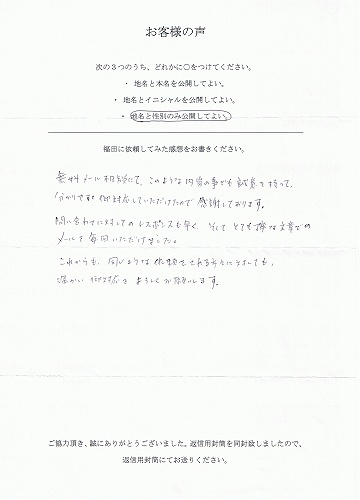 お客様の声
次の3つのうち、どれかに○をつけてください。
・ 地名と本名を公開してよい。
・ 地名とイニシャルを公開してよい。
・ 地名と性別のみ公開してよい。
福田に依頼してみた感想をお書きください。
無料メール相談にて、このような内容の事でも誠意を持って、
分かりやすい御対応していただけたので感謝しております。
問い合わせに対してのレスポンスも早く、そして とても丁寧な文章での
メールを毎回いただけました。
これからも、同じような依頼をされる方々に対しても、
温かい御対応をよろしくお願いします。
ご協力頂き、誠にありがとうございました。返信用封筒を同封致しましたので、
返信用封筒にてお送りください。